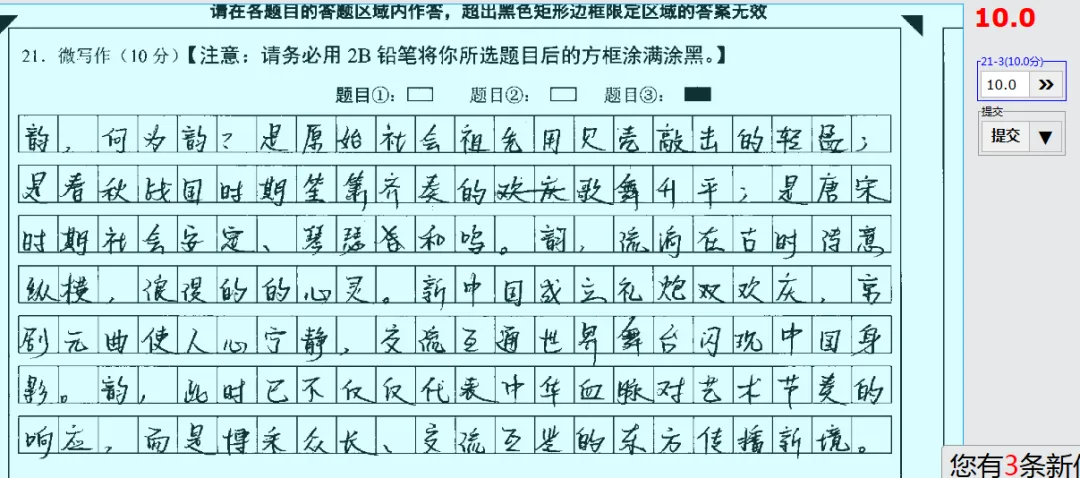 请在各题目的答题区域内作答，超出黑色矩形边框限定区域的答案无效
10.0
21．微写作（10 分）【注意：请务必用 2B 铅笔将你所选题目后的方框涂满涂黑。】
21-3(10.0分)
10.0 »
题目①： 题目②： 题目③：
提交
提交 ▼
韵，何为韵？是原始社会祖先用贝壳敲击的轻
是春秋战国时期笙箫齐奏的欢庆歌舞升平；是唐宋
时期社会安定、琴瑟和鸣。韵，流淌在古时诗意
纵横，浪漫的的心灵。新中国成立礼炮双欢庆，京
剧元曲使人心宁静，交流互通世界舞台闪现中国身
影。韵，此时已不仅仅代表中华血脉对艺术节奏的
响应，而是博采众长、交流互鉴的东方传播新境。
您有3条新